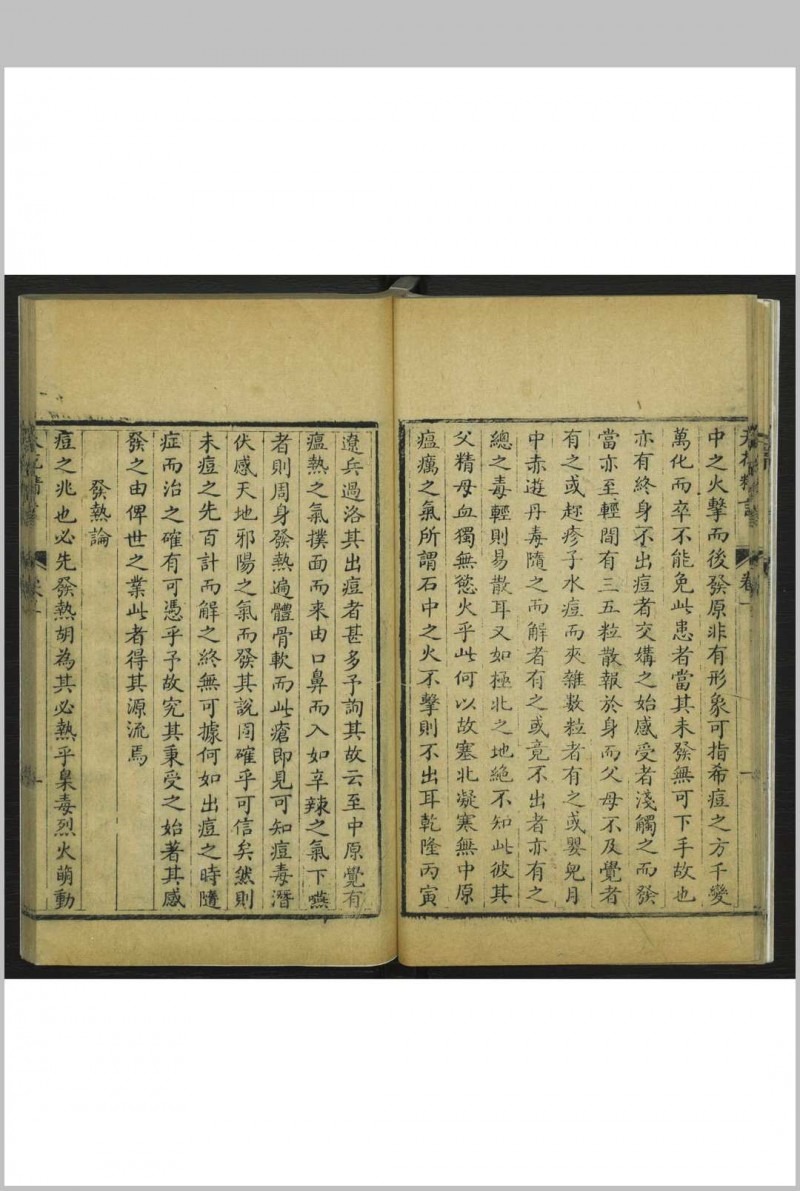 天花精言 卷一 一
中之火擊而後發原非有形象可指希痘之方千變
萬化而卒不能免此患者當其未發無可下手故也
亦有終身不出痘者交媾之始感受者淺觸之而發
當亦至輕間有三五粒散報於身而父母不及覺者
有之或趂疹子水痘而夾雜数粒者有之或嬰兒月
中赤遊丹毒隨之而解者有之或竟不出者亦有之
總之毒輕則易散耳又如極北之地絶不知此彼其
父精母血獨無慾火乎此何以故塞北凝寒無中原
瘟癘之氣所謂石中之火不擊則不出耳乾隆丙寅
遼兵過洛其出痘者甚多予詢其故云至中原覺有
瘟熱之氣撲面而来由口鼻而入如辛辣之氣下嚥
者則周身發熱遍體骨軟而此瘡即見可知痘毒潛
伏感天地邪陽之氣而發其說固確乎可信矣然則
未痘之先百計而解之終無可據何如出痘之時隨
症而治之確有可憑乎予故究其秉受之始著其感
發之由俾世之業此者得其源流焉
發熱論
痘之兆也必先發熱胡為其必熱乎梟毒烈火萌動